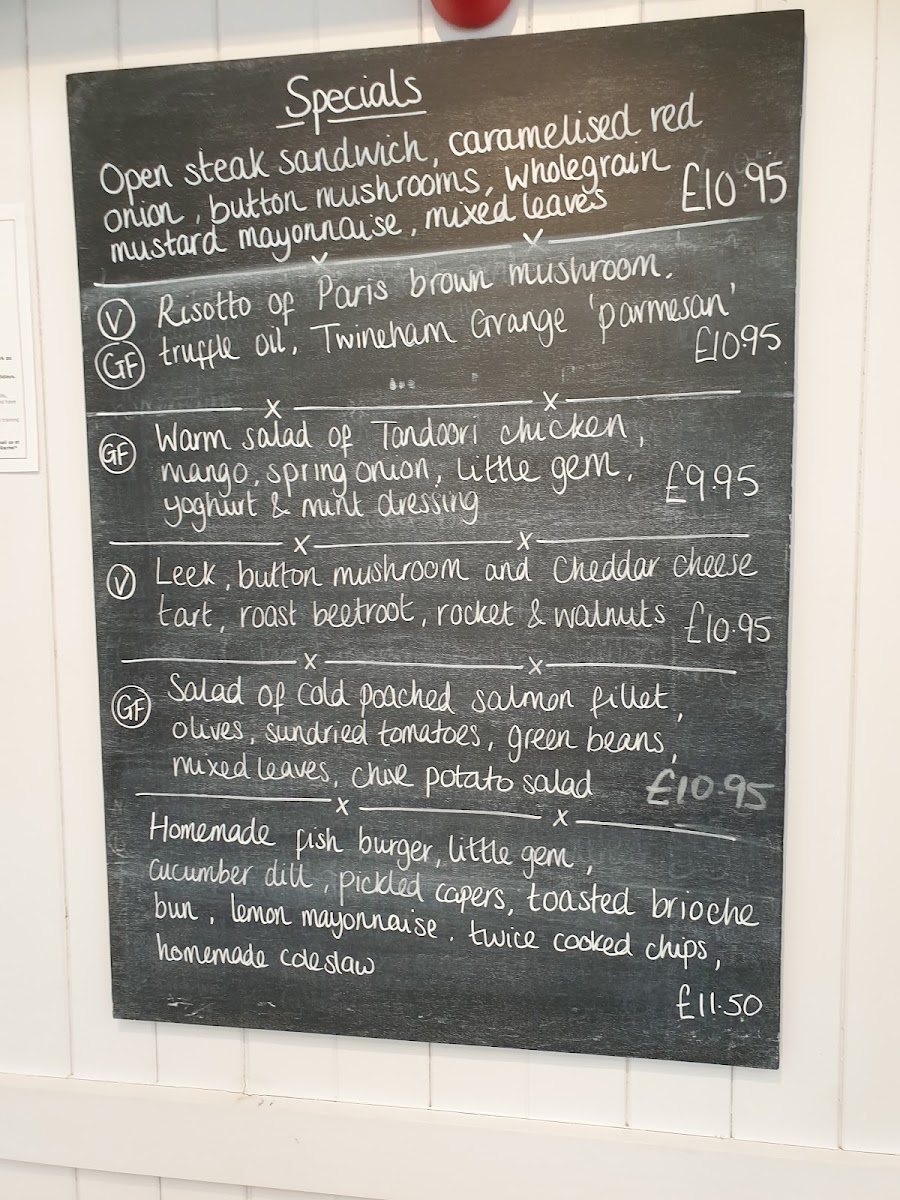 Specials
Open steak sandwich, caramelised red
onion, button mushrooms, wholegrain
mustard mayonnaise, mixed leaves £10.95
V Risotto of Paris brown mushroom,
GF truffle oil, Twineham Grange 'parmesan'
£10.95
GF Warm salad of Tandoori chicken,
mango, spring onion, little gem,
yoghurt & mint dressing £9.95
V Leek, button mushroom and Cheddar cheese
tart, roast beetroot, rocket & walnuts £10.95
GF Salad of cold poached salmon fillet,
olives, sundried tomatoes, green beans,
mixed leaves, chive potato salad £10.95
Homemade fish burger, little gem,
cucumber dill, pickled capers, toasted brioche
bun, lemon mayonnaise, twice cooked chips,
homemade coleslaw
£11.50